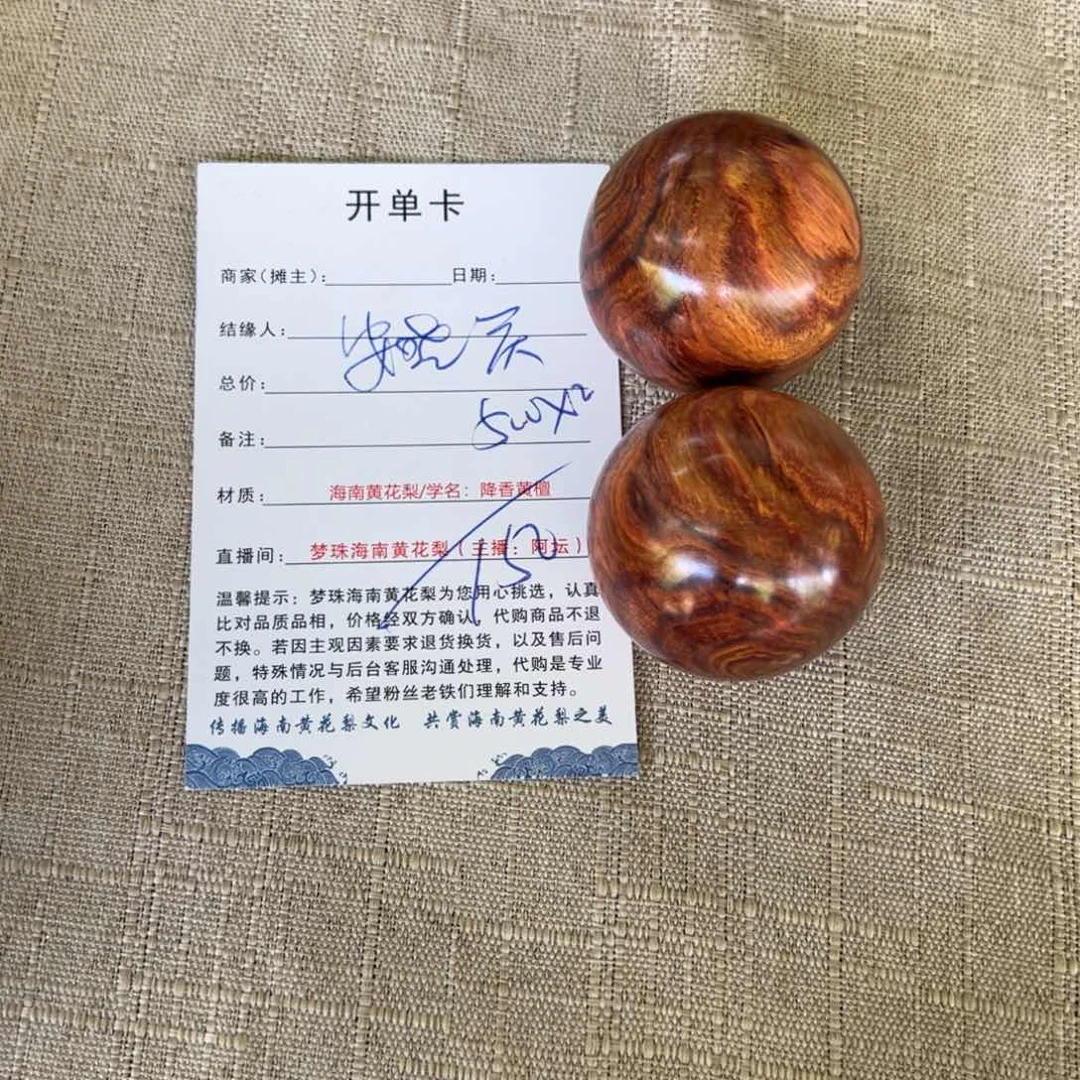 开单卡
商家(摊主): 日期:
结缘人:
总价:
备注:
材质: 海南黄花梨/学名: 降香黄檀
直播间: 梦珠海南黄花梨(主播: 阿坛)
150
温馨提示: 梦珠海南黄花梨为您用心挑选, 认真
比对品质品相, 价格经双方确认, 代购商品不退
不换。若因主观因素要求退货换货, 以及售后问
题, 特殊情况与后台客服沟通处理, 代购是专业
度很高的工作, 希望粉丝老铁们理解和支持。
传播海南黄花梨文化 共赏海南黄花梨之美